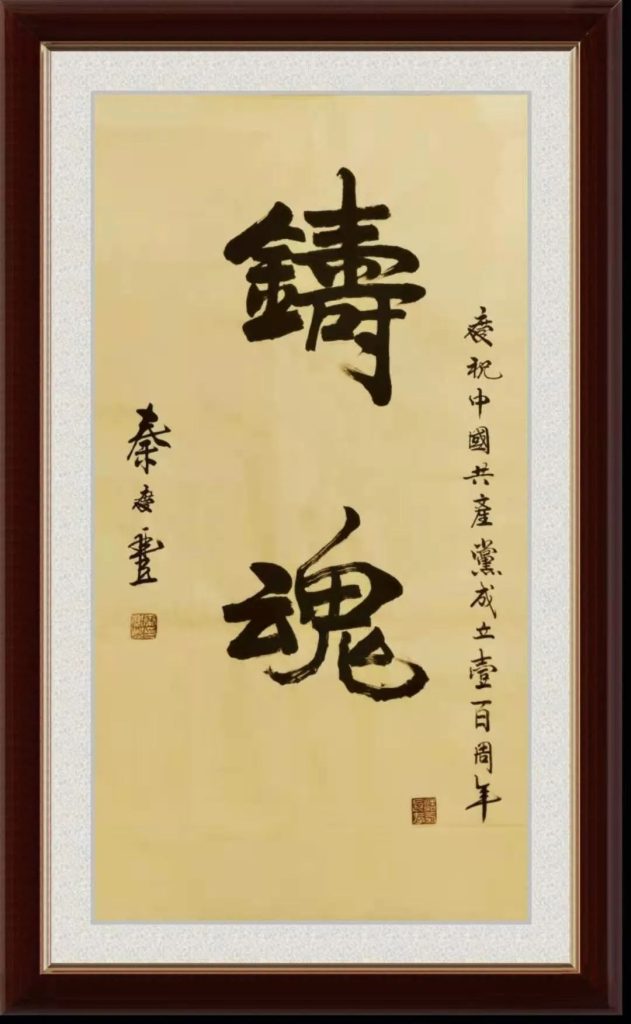 慶祝中國共產黨成立壹百周年
鑄魂
秦慶